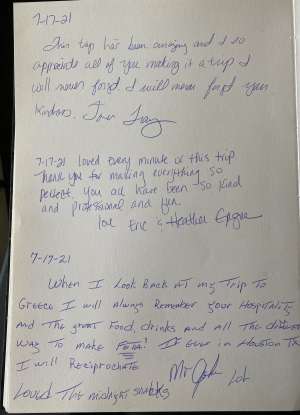 7-17-21
This trip has been amazing and I so
appreciate all of you making it a trip I
will never forget. I will never forget your
kindness.
7-17-21 loved every minute of this trip
Thank you for making everything so
perfect. You all have been so kind
and professional and fun.
love Eric & Heather
7-17-21
When I Look Back at my Trip to
Greece I will always Remember your Hospitality
And The great Food, drinks and All The different
way to make FETA! If Ever in Houston TX
I will Reciprocate
Loved The midnight snacks Mr John Lol